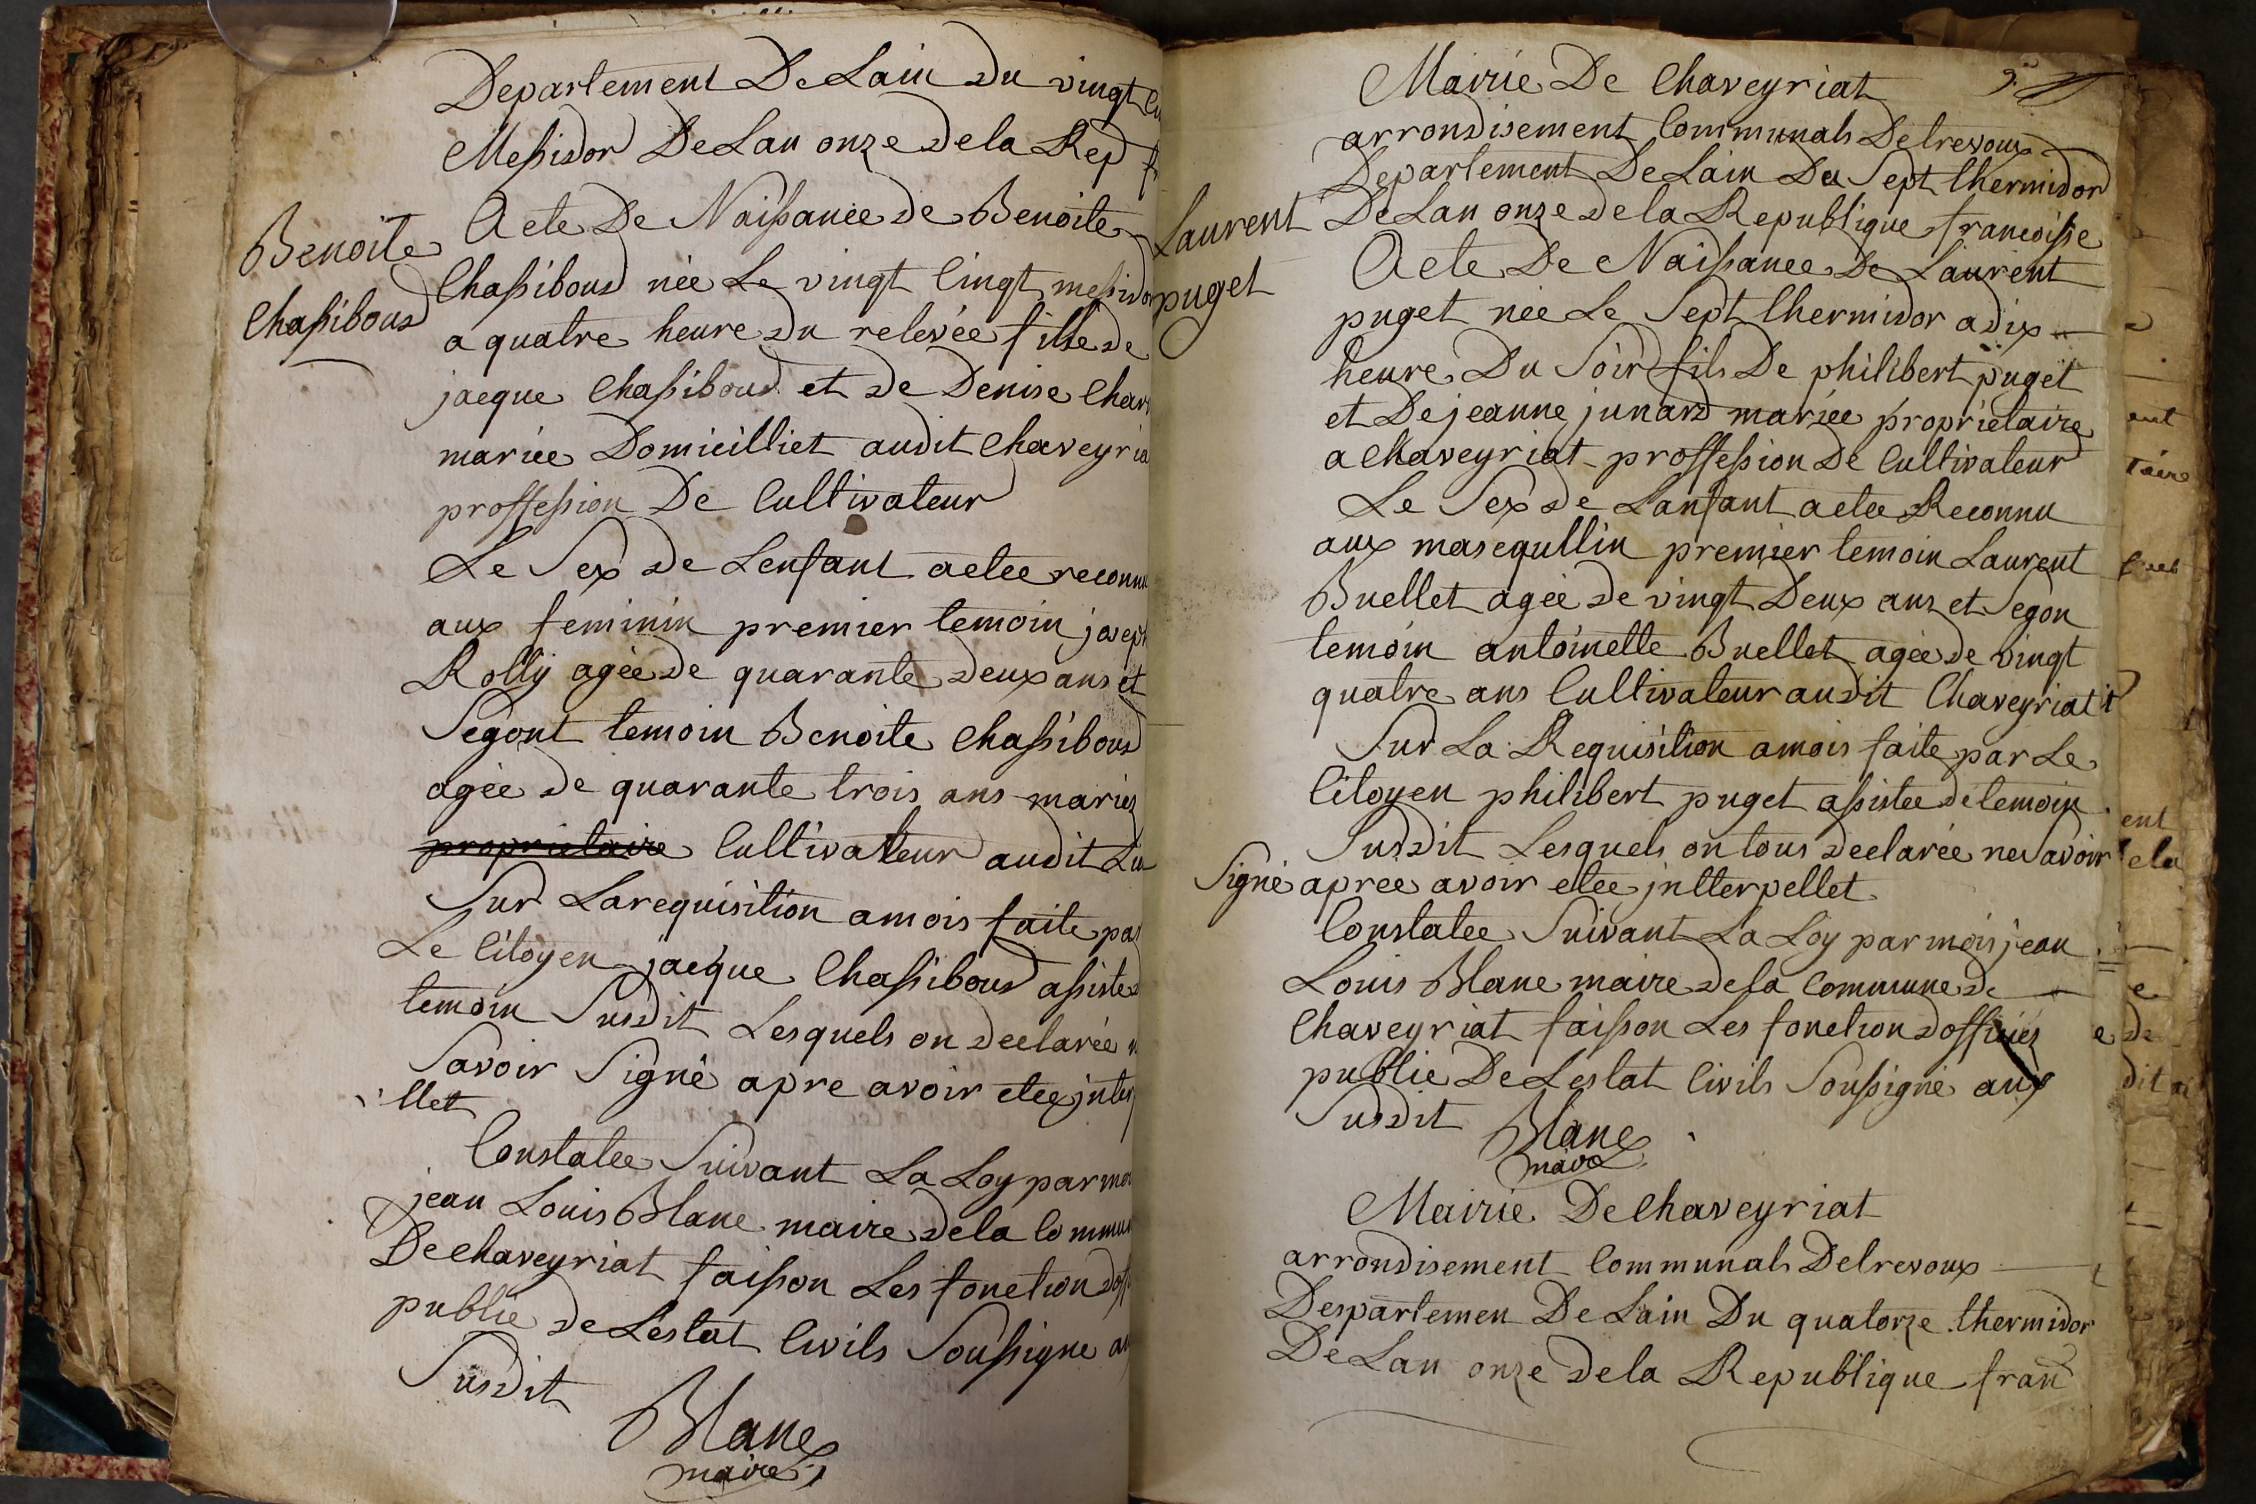 Departement De Lain Du vingt
Messidor De Lan onze de la Rep f
Benoite
Chassiboud
Acte De Naissance de Benoite
Chassiboud née Le vingt Cingt messidor
a quatre heure du relevée fille de
jacque Chassiboud et de Denise Char
mariée Domicilliet audit Chaveyria
proffession De Cultivateur
Le Sex de Lenfant a etee reconnu
aux feminin premier temoin joseph
Rolly agée de quarante deux ans et
Segont temoin Benoite Chassiboud
agée de quarante trois ans mariez
proprietaire Cultivateur audit Lieu
Sur La requisition a mois faite par
Le Citoyen jacque Chassiboud assiste
temoin Susdit Lesquels on declarée n
Savoir Signé apre avoir etee inter
llet
Constatee Suivant La Loy par moi
jean Louis Blanc maire de la Commun
De Chaveyriat faisson Les fonction doff
public de Lestat Civils Soussigne au
Susdit
Blanc
maire
Mairie De Chaveyriat
arrondisement Communals De trevoux
Departement De Lain Du Sept thermidor
De Lan onze de la Republique francoisse
Laurent
puget
Acte De Naissance De Laurent
puget née Le Sept thermidor a dix
heure Du Soir fils De philibert puget
et De jeanne junard mariée propriétaire
a Chaveyriat proffession De Cultivateur
Le Sex de Lanfant a etee Reconnu
aux mascqullin premier temoin Laurent
Buellet agée de vingt Deux ans et Segon
temoin antoinette Buellet agée de vingt
quatre ans Cultivateur audit Chaveyriatit
Sur La Requisition a mois faite par Le
Citoyen philibert puget assistee de temoin
Susdit Lesquels on tous declarée ne Savoir
Signé apree avoir etee intterpellet
Constatee Suivant La Loy par mois jean
Louis Blanc maire de la Commune de
Chaveyriat faisson Les fonction dofficiez
public De Lestat Civils Soussigné aux
Susdit
Blanc
maire
Mairie De Chaveyriat
arrondisement Communals De trevoux
Despartemen De Lain Du quatorze thermidor
De Lan onze de la Republique fran